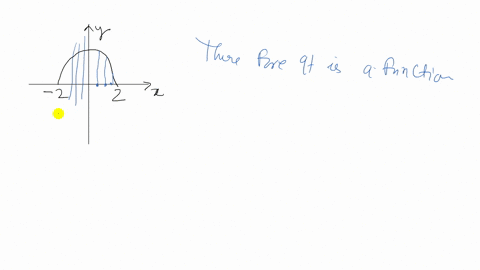 y
-2
2
x
There fore it is a function